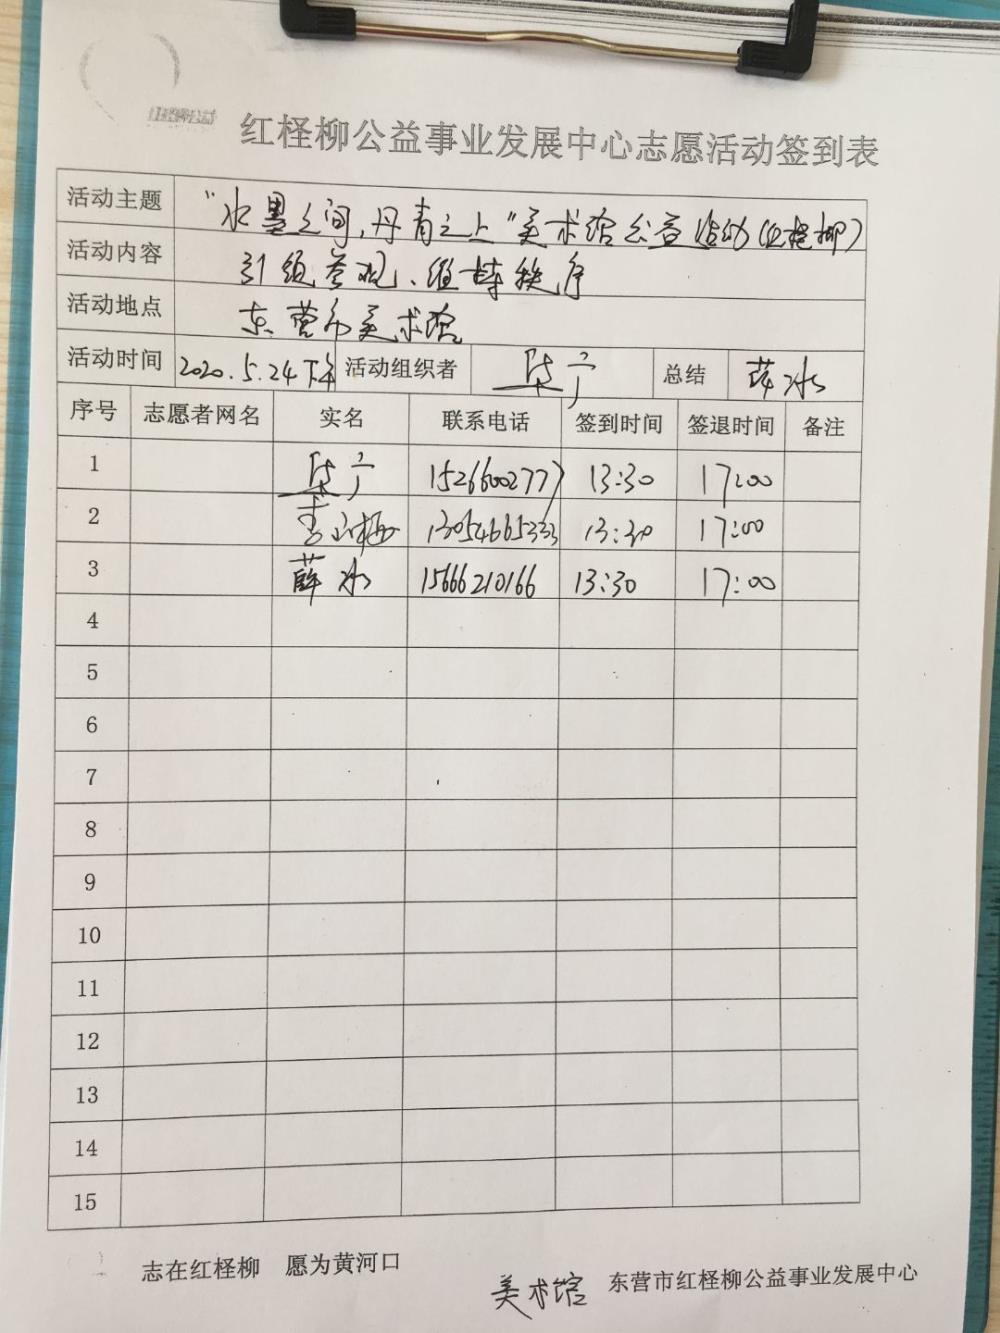 红柽柳公益
红柽柳公益事业发展中心志愿活动签到表
活动主题 "水墨之间,丹青之上"美术馆公益活动(红柽柳)
活动内容 引领参观、维持秩序
活动地点 东营市美术馆
活动时间 2020.5.24下午 活动组织者 总结 薛冰
序号 志愿者网名 实名 联系电话 签到时间 签退时间 备注
1 15266002777 13:30 17:00
2 13054665333 13:30 17:00
3 薛冰 15666210166 13:30 17:00
4
5
6
7
8
9
10
11
12
13
14
15
志在红柽柳 愿为黄河口
美术馆 东营市红柽柳公益事业发展中心